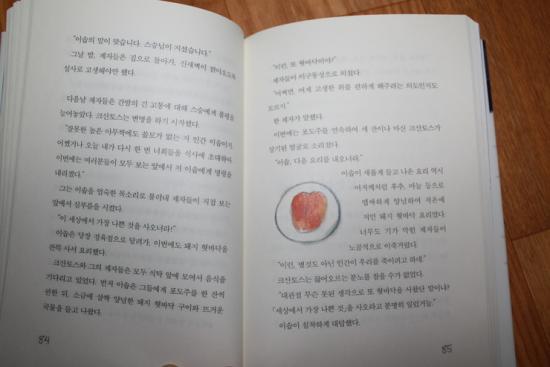 "이솝의 말이 맞습니다. 스승님이 지셨습니다."
그날 밤, 제자들은 집으로 돌아가, 신새벽이 밝아오도록
설사로 고생해야만 했다.
다음날 제자들은 간밤의 긴 고통에 대해 스승에게 불평을
늘어놓았다. 크산토스는 변명을 하기 시작했다.
"잘못한 놈은 아무짝에도 쓸모가 없는 저 인간 이솝이지.
어쨌거나 오늘 내가 다시 한 번 너희들을 식사에 초대하마.
이번에는 여러분들이 모두 보는 앞에서 저 이솝에게 명령을
내리겠다."
그는 이솝을 엄숙한 목소리로 불러내 제자들이 직접 보는
앞에서 심부름을 시켰다.
"이 세상에서 가장 나쁜 것을 사오너라!"
이솝은 당장 정육점으로 달려가, 이번에도 돼지 혓바닥을
관뚝 사서 요리했다.
크산토스와 그의 제자들은 모두 식탁 앞에 모여서 음식을
기다리고 있었다. 먼저 이솝은 그들에게 포도주를 한 잔씩
권한 뒤, 소금에 살짝 양념한 돼지 혓바닥 구이와 뜨거운
국물을 들고 나왔다.
84
"이런, 또 혓바닥이야!"
제자들이 이구동성으로 외쳤다.
"어쩌면, 어제 고생한 위를 편하게 해주려는 의도인지도
모르지."
한 제자가 말했다.
이번에는 포도주를 연속하여 세 잔이나 마신 크산토스가
상기된 얼굴로 소리쳤다.
"이솝, 다음 요리를 내오너라."
이솝이 새롭게 들고 나온 요리 역시
어저께처럼 후추, 마늘 등으로
맵싸하게 양념하여 석쇠에
구운 돼지 혓바닥 요리였다.
너무도 기가 막힌 제자들이
노골적으로 이죽거렸다.
"이런, 별것도 아닌 인간이 우리를 죽이려고 하네."
크산토스는 끓어오르는 분노를 참을 수가 없었다.
"대관절 무슨 못된 생각으로 또 혓바닥을 사왔단 말이냐?
'세상에서 가장 나쁜 것'을 사오라고 분명히 일렀거늘."
이솝이 침착하게 대답했다.
85